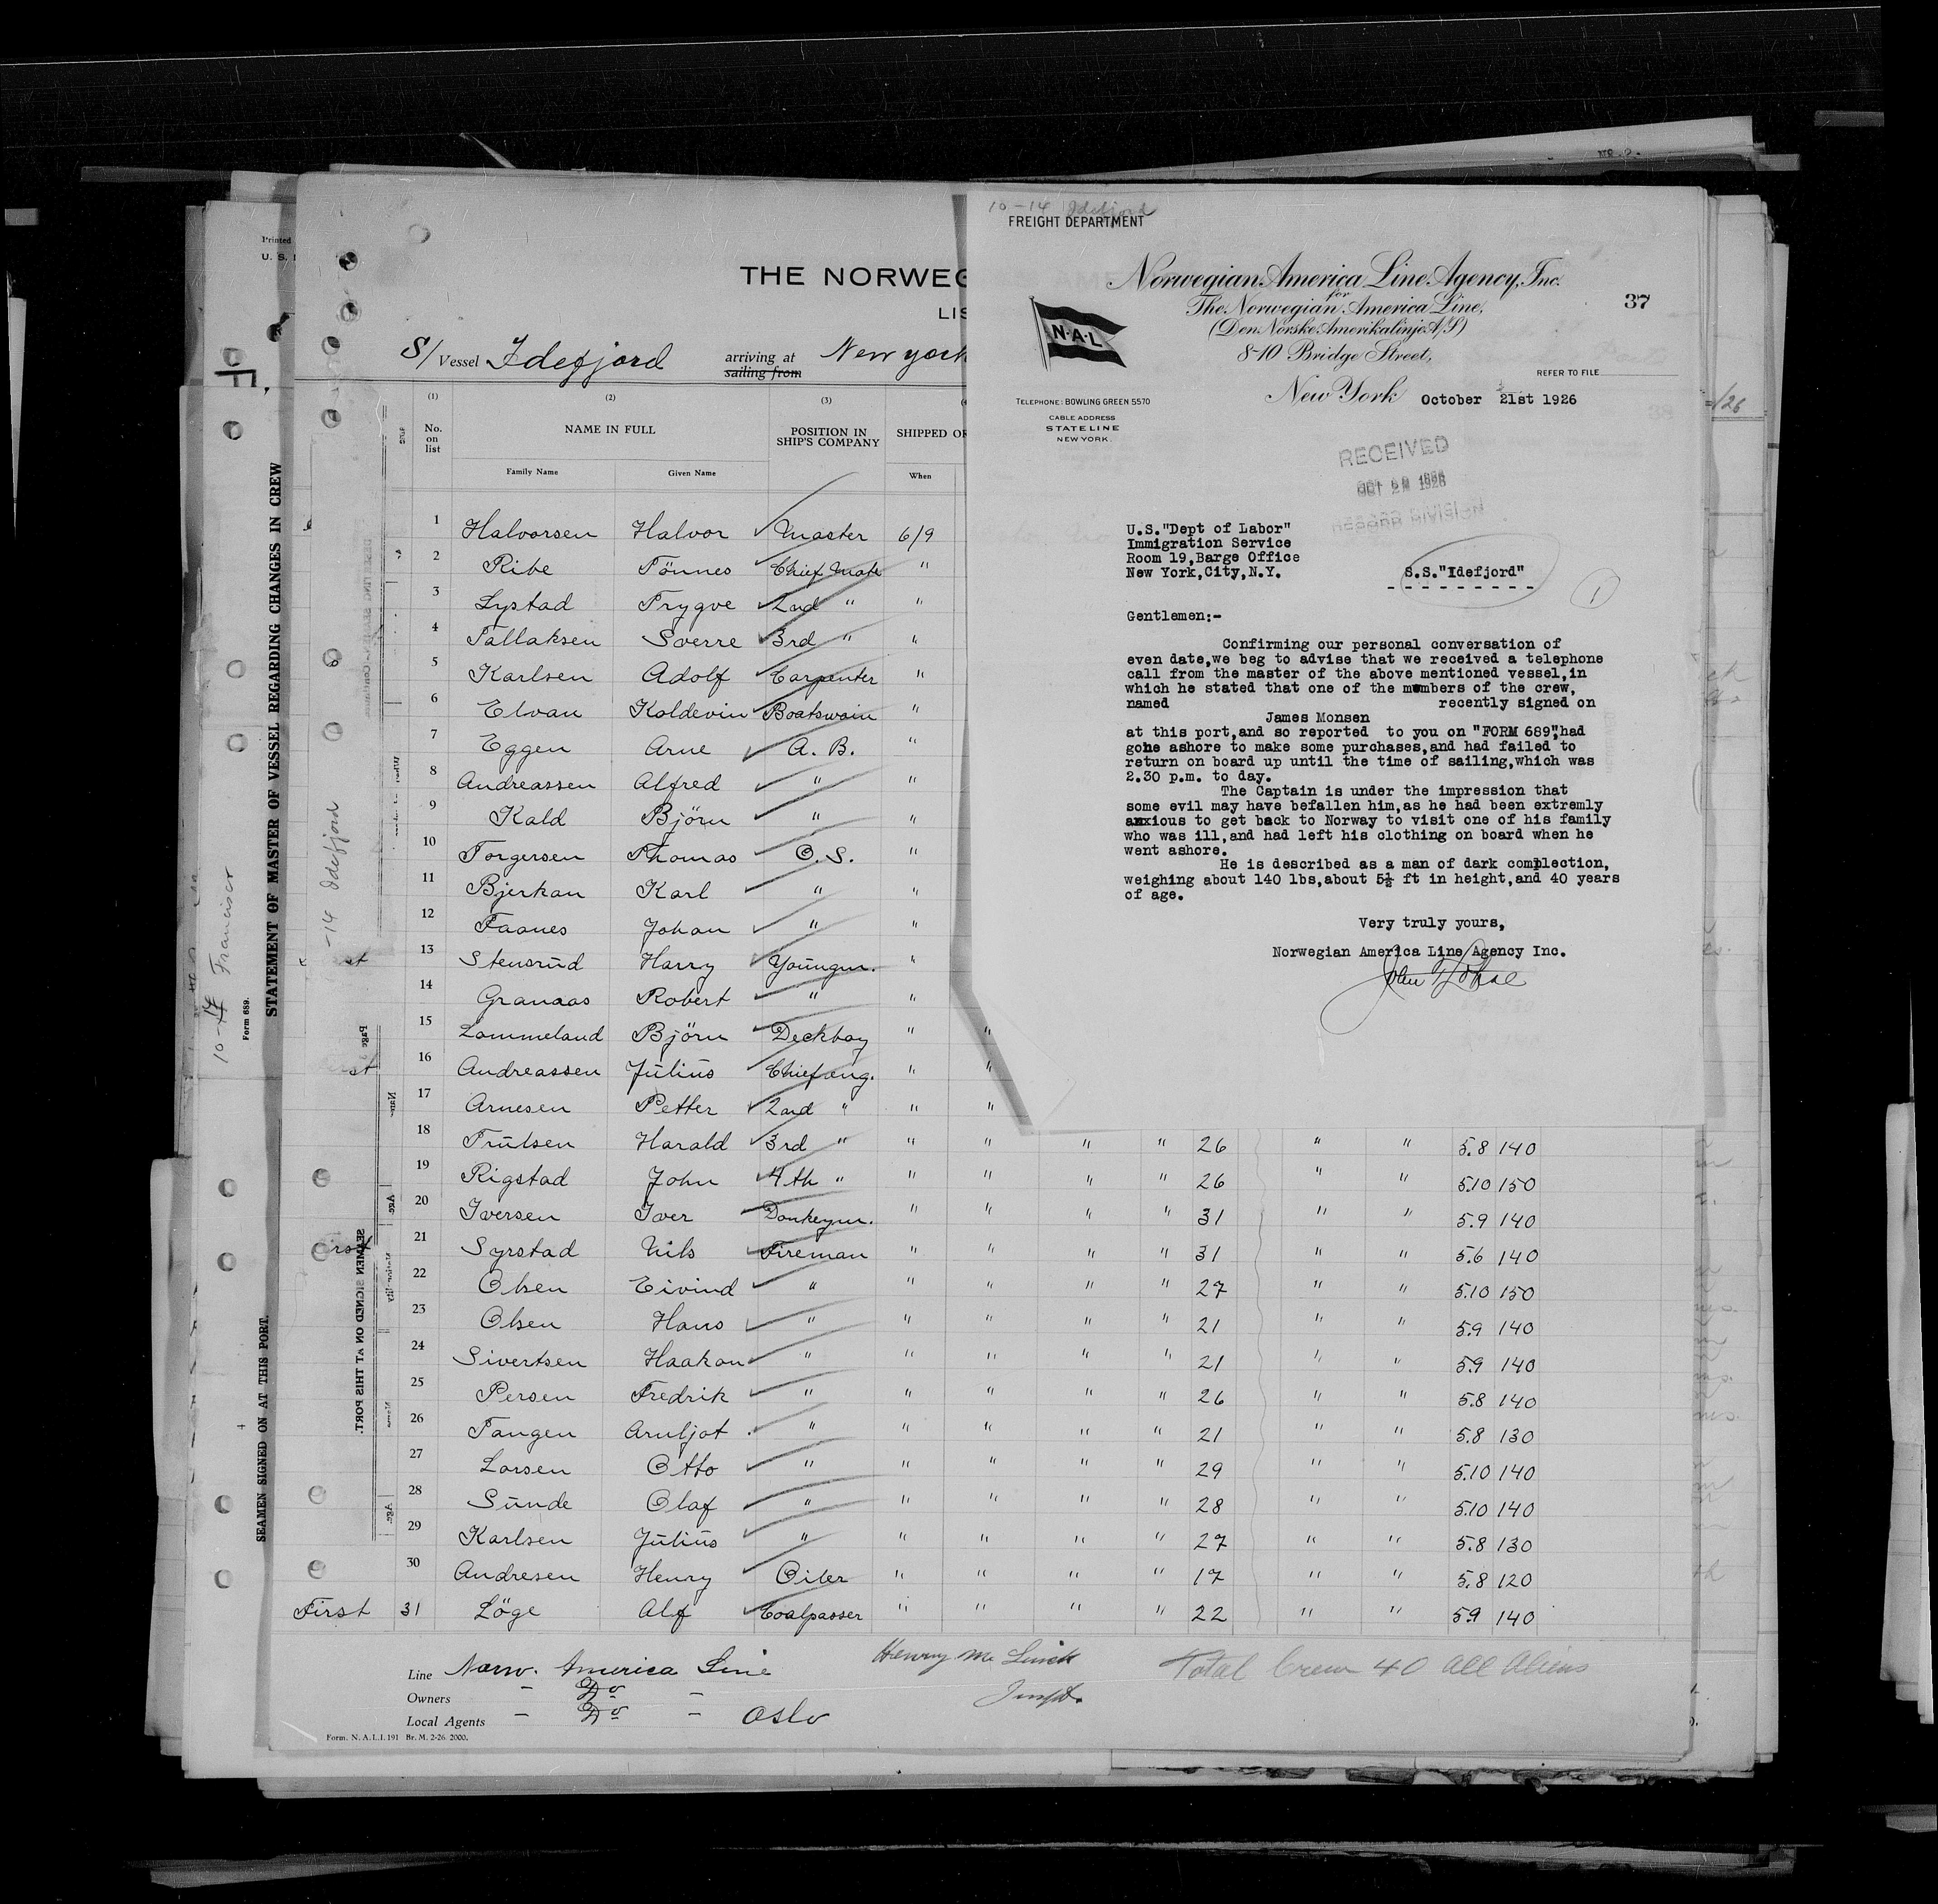 10-14 Idefjord
FREIGHT DEPARTMENT
Norwegian America Line Agency, Inc.
for
The Norwegian America Line,
(Den Norske Amerikalinje A/S)
8-10 Bridge Street,
37
N·A·L
REFER TO FILE
New York October 21st 1926
TELEPHONE: BOWLING GREEN 5570
CABLE ADDRESS
STATELINE
NEW YORK.
RECEIVED
U.S."Dept of Labor"
Immigration Service
Room 19,Barge Office
New York,City,N.Y.
S.S."Idefjord"
1
Gentlemen:-
Confirming our personal conversation of
even date,we beg to advise that we received a telephone
call from the master of the above mentioned vessel,in
which he stated that one of the members of the crew,
named recently signed on
James Monsen
at this port,and so reported to you on "FORM 689",had
gone ashore to make some purchases,and had failed to
return on board up until the time of sailing,which was
2.30 p.m. to day.
The Captain is under the impression that
some evil may have befallen him,as he had been extremly
anxious to get back to Norway to visit one of his family
who was ill,and had left his clothing on board when he
went ashore.
He is described as a man of dark complection,
weighing about 140 lbs,about 5½ ft in height,and 40 years
of age.
Very truly yours,
Norwegian America Line Agency Inc.
Printed
U. S.
THE NORWEG
LIS
S/ Vessel Idefjord arriving at New york
sailing from
(1) (2) (3)
No. on list NAME IN FULL POSITION IN SHIP'S COMPANY SHIPPED OR
Family Name Given Name When
1 Halvorsen Halvor Master 6/9
2 Ribe Tönnes Chief Mate "
3 Lystad Trygve 2nd " "
4 Tallaksen Sverre 3rd " "
5 Karlsen Adolf Carpenter "
6 Elvan Koldevin Boatswain "
7 Eggen Arne A. B. "
8 Andreassen Alfred " "
9 Kald Björn " "
10 Torgersen Thomas O. S. "
11 Bjerkan Karl " "
12 Faanes Johan " "
13 Stensrud Harry Youngm. "
14 Granaas Robert " "
15 Lommeland Björn Deckboy " "
16 Andreassen Julius Chief eng. " "
17 Arnesen Petter 2nd " " "
18 Trulsen Harald 3rd " " " " " 26 " " 5.8 140
19 Rigstad John 4th " " " " " 26 " " 5.10 150
20 Iversen Iver Donkeym. " " " " 31 " " 5.9 140
21 Syrstad Nils Fireman " " " " 31 " " 5.6 140
22 Olsen Eivind " " " " " 27 " " 5.10 150
23 Olsen Hans " " " " " 21 " " 5.9 140
24 Sivertsen Haakon " " " " " 21 " " 5.9 140
25 Persen Fredrik " " " " " 26 " " 5.8 140
26 Tangen Arnljot " " " " " 21 " " 5.8 130
27 Larsen Otto " " " " " 29 " " 5.10 140
28 Sunde Olaf " " " " " 28 " " 5.10 140
29 Karlsen Julius " " " " " 27 " " 5.8 130
30 Andresen Henry Oiler " " " " 17 " " 5.8 120
First 31 Löge Alf Coalpasser " " " " 22 " " 5.9 140
Line Norw. America Line
Owners - Do -
Local Agents - Do - Oslo
Form. N. A. L.I. 191 Br. M. 2-26 2000.
Total Crew 40 all Aliens
STATEMENT OF MASTER OF VESSEL REGARDING CHANGES IN CREW
SEAMEN SIGNED ON AT THIS PORT.
Form 689.
10-14 Francisco
-14 Idefjord
SEAMEN SIGNED ON AT THIS PORT.